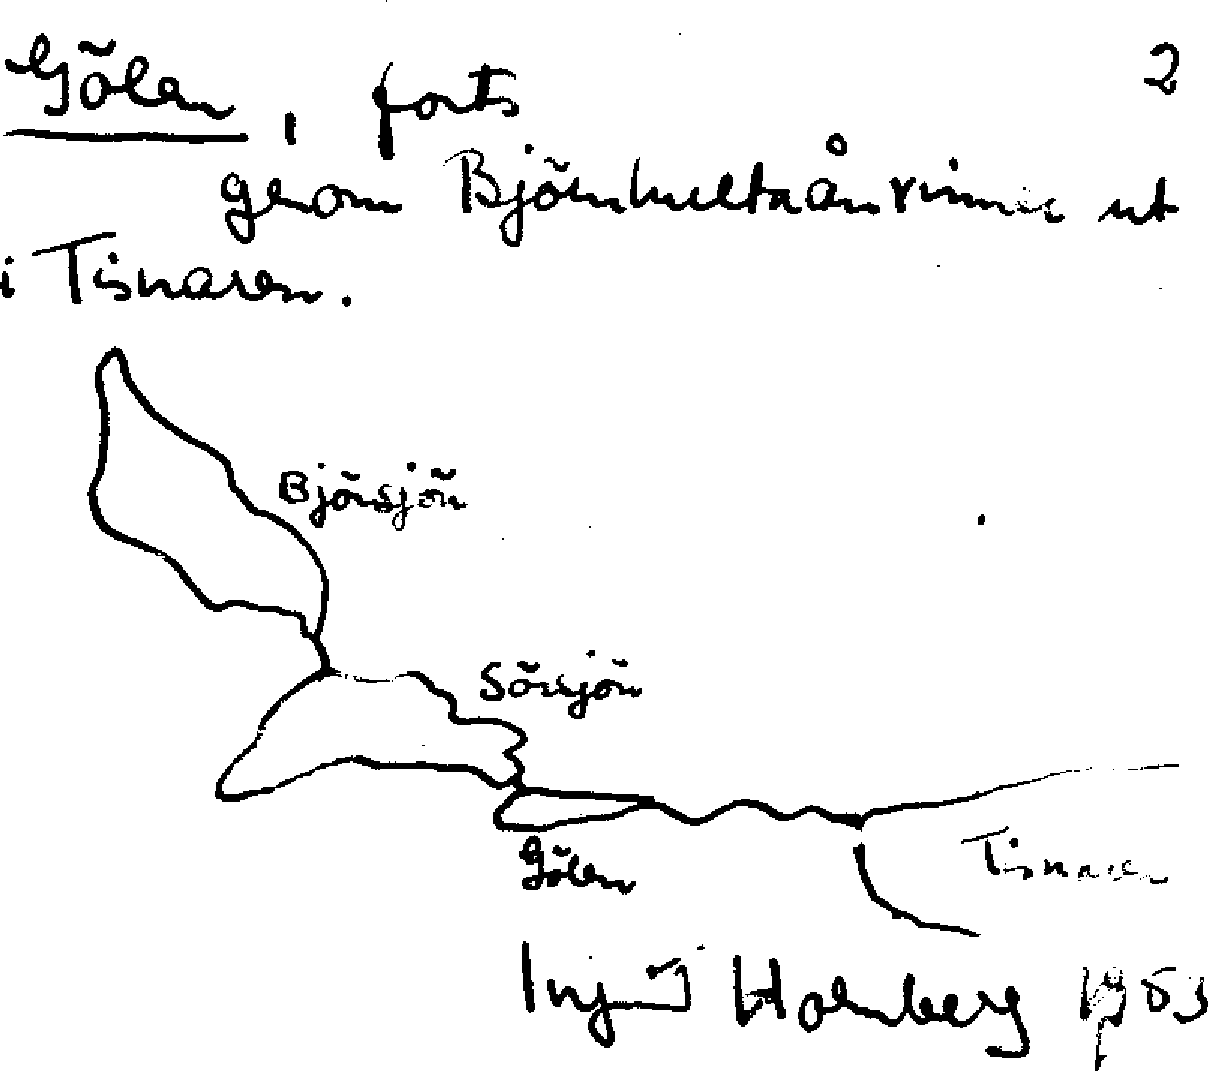 Gölen, forts 2
genom Björnhultaån rinner ut
i Tisnaren.
Björsjön
Sörsjön
Gölen
Tisnaren
Holmberg 1953